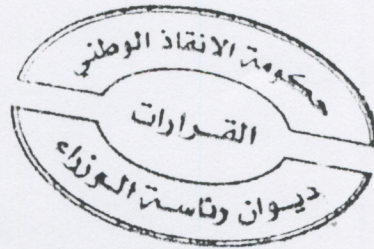 حكومة الانقاذ الوطني
القرارات
ديوان رئاسة الوزراء